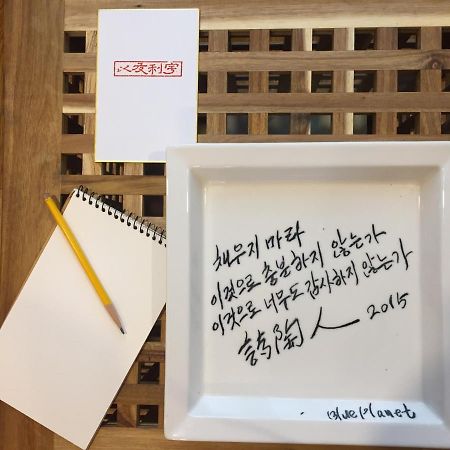 채우지 마라
이것으로 충분하지 않는가
이것으로 너무도 감사하지 않는가
陶人 2015
Blue Planet